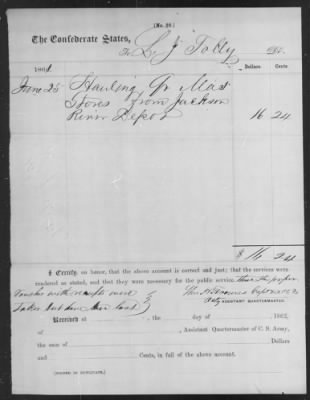 (No. 20)
The Confederate States,
To L. J. Tolly Dr.
Dollars Cents
1861
June 25 Hauling Qr Mas
Stores from Jackson
River Depot 16 24
$ 16 24
I Certify, on honor, that the above account is correct and just; that the services were
rendered as stated, and that they were necessary for the public service; that the
were
but have been lost
ASSISTANT QUARTERMASTER.
Received at , the day of , 1862,
of , Assistant Quartermaster of C. S. Army,
the sum of Dollars
and Cents, in full of the above account.
(SIGNED IN DUPLICATE.)